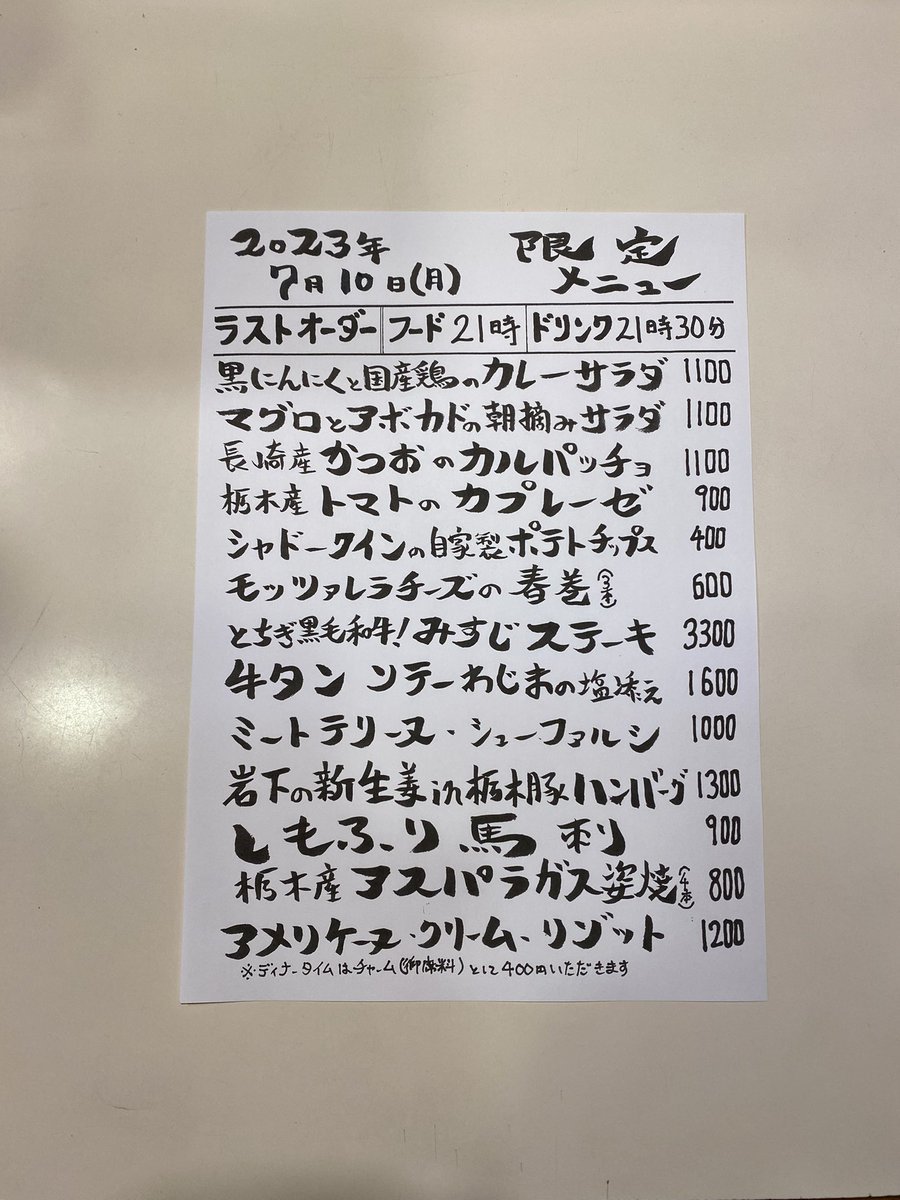 2023年 限定
7月10日(月) メニュー
ラストオーダー フード21時 ドリンク21時30分
黒にんにくと国産鶏のカレーサラダ 1100
マグロとアボカドの朝摘みサラダ 1100
長崎産かつおのカルパッチョ 1100
栃木産トマトのカプレーゼ 900
シャドークインの自家製ポテトチップス 400
モッツァレラチーズの春巻(3本) 600
とちぎ黒毛和牛!みすじステーキ 3300
牛タンソテーわじまの塩添え 1600
ミートテリーヌ・シューファルシ 1000
岩下の新生姜in栃木豚ハンバーグ 1300
しもふり馬刺 900
栃木産アスパラガス姿焼(4本) 800
アメリケーヌ・クリーム・リゾット 1200
※ディナータイムはチャーム(御席料)として400円いただきます